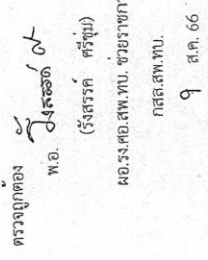 ตรวจถูกต้อง
พ.อ.
(รังสรรค์ ศรีชุ่ม)
ผอ.รง.ศอ.สพ.ทบ. ช่วยราชกา
กสล.สพ.ทบ.
๑ ส.ค. 66